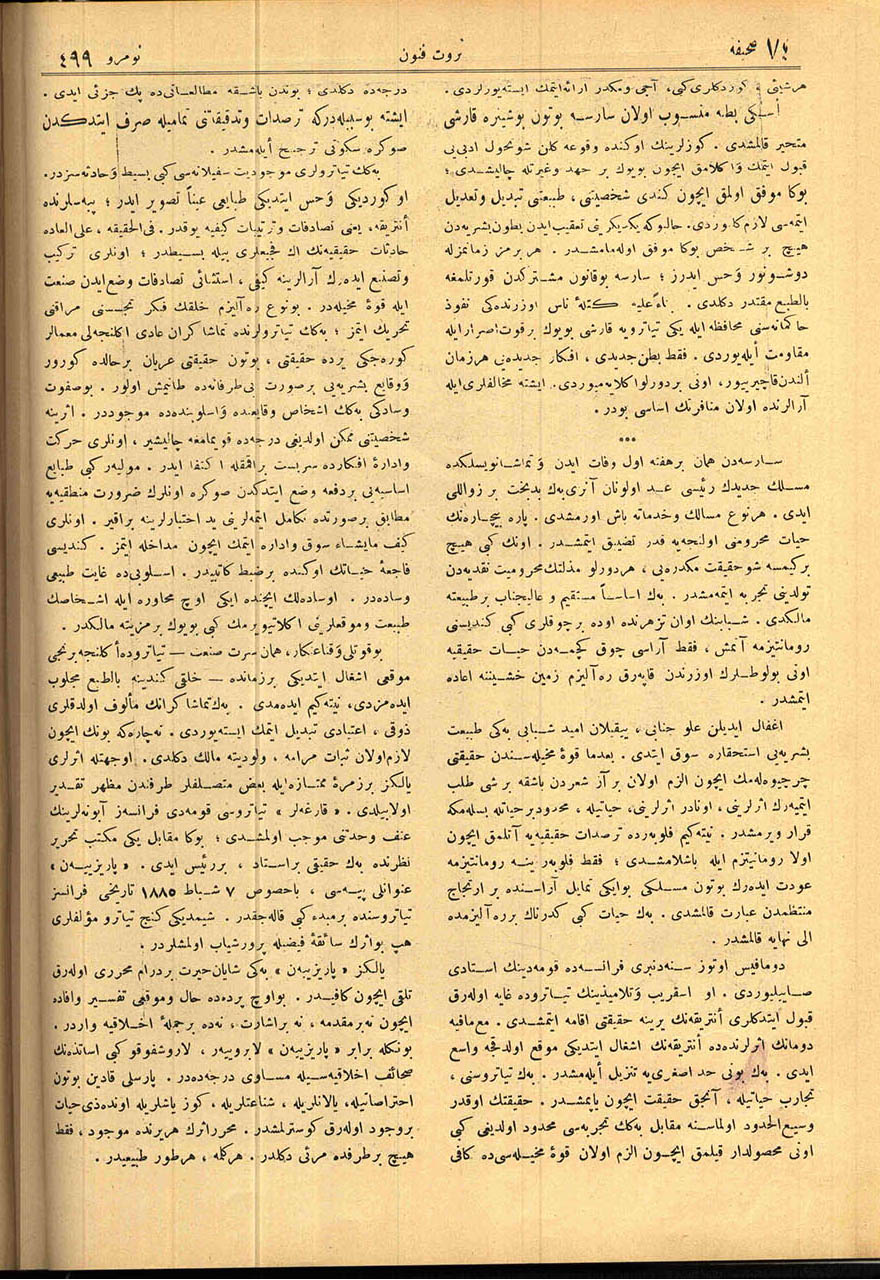 صحیفه
ثروت فنون
نومرو ٤٩٩
هرشیئی کوردکلری کبی، آجی ومکدر ارائه ایتمك ایسته یورلردی .
اسکی بطنه منسوب اولان سارسه بوتون بوشیئره قارشی
متحیر قالمشدی . کوزلرینك اوکنده وقوعه کلن شوتحول ادبی یی
قبول ایتمك وَاکلامق ایچون بویوك بر جهد وغیرتله چالیشدی ؛
بوکا موفق اولمق ایچون کندی شخصیتنی ، طبیعتنی تبدیل وتعدیل
ایتمه سی لازم کلیوردی . حالبوکه یکدیکرینی تعقیب ایدن بطون بشریه دن
هیچ بر شخص بوکا موفق اوله مامشدر . هر بریمز زمانمزله
دوشونور وَحس ایدرز ؛ سارسه بوقانون مشترکدن قورتلمغه
بالطبع مقتدر دکلدی . بناءً علیه کتلهٔ ناس اوزرنده کی نفوذ
حاکمانه سنی محافظه ایله یکی تیاترویه قارشی بویوك برقوت اصرار ایله
مقاومت أیله یوردی . فقط بطن جدیدی ، افکار جدیده یی هرزمان
ألندن قاچیرییور، اونی بردورلو اکلایه میوردی. ایشته مخالفلری ایله
آرالرنده اولان منافرتك اساسی بودر .
***
سارسه دن همان برهفته اول وفات ایدن وَتماشانویسلکده
مسلك جدیدك رئیسی عد اولونان آنری بەك بدبخت بر زواللی
ایدی . هرنوع مسالك وخدماته باش اورمشدی . پاره بیچاره نك
حیات محرومنی اولنجه یه قدر تضییق ایتمشدر . اونك کبی هیچ
برکیمسه شو حقیقت مکدره یی ، هردورلو مذلتك محرومیت نقدیه دن
تولدینی تجربه ایتمه مشدر . بەك اساساً مستقیم و عالیجناب بر طبیعته
مالکدی . شبابنك اوان تزهرنده اوده برچوقلری کبی کندیسنی
رومانتیزمه آتمش ، فقط آراسی چوق کچمه دن حیات حقیقیه
اونی بولوطلرك اوزرندن قاپه رق ره آلیزم زمین خشیننه اعاده
ایتمشدر .
اغفال ایدیلن علو جنابی ، ییقیلان امید شبابی بەکی طبیعت
بشریه یی استحقاره سوق ایتدی . بعدما قوهٔ مخیله سندن حقیقتی
چرچیوه له مك ایچون الزم اولان برآز شعردن باشقه بر شی طلب
ایتمیه رك اثرلرینی ، اونادر اثرلرینی، حیاتیله ، محدود برحیاتله بسله مکه
قرار ویرمشدر . نیته کیم فلوبه رده ترصدات حقیقیه یه آتلمق ایچون
اولا رومانتیزم ایله باشلامشدی ؛ فقط فلوبه ر ینه رومانتیزمه
عودت ایده رك بوتون مسلکی بوایکی تمایل آراسنده بر ارتجاج
منتظمدن عبارت قالمشدی . بەك حیات کبی کدرناك برره آلیزمده
الی نهایه قالمشدر .
دوما فیس اوتوز سنه دنبری فرانسه ده قومه دینك استادی
صاییلیوردی . او اسقریب وَتلامیذینك تیاتروده غایه اوله رق
قبول ایتدکلری أنتریقه نك یرینه حقیقتی اقامه ایتمشدی . مع مافیه
دومانك اثرلرنده ده أنتریقه نك اشغال ایتدیکی موقع اولدقجه واسع
ایدی . بەك بونی حد اصغری یه تنزیل أیله مشدر . بەك تیاتروسنی ،
تجارب حیاتیله ، آنجق حقیقت ایچون یاپمشدر . حقیقتك اوقدر
وسیع الحدود اولماسنه مقابل بەکك تجربه سی محدود اولدیغی کبی
اونی محصولدار قیلمق ایچون الزم اولان قوهٔ مخیله سی ده کافی
درجه ده دکلدی ؛ بوتدن باشقه مطالعاتی ده پك جزئی ایدی .
ایشته بوسببله درکه ترصدات وتدقیقاتنی تمامیله صرف ایتدکدن
صوکره سکوتی ترجیح أیله مشدر .
بەکك تیاترولری موجودیت سفیلانه سی کبی بسیط وَحادثه سزدر.
او کوردیکی وَحس ایتدیکی طبایعی عیناً تصویر ایدر ؛ پیه سلرنده
أنتریقه، یعنی تصادفات وترتیبات کیفیه یوقدر . فی الحقیقه ، علی العاده
حادثات حقیقیه نك اك فجیعلری بیله بسیطدر ؛ اونلری ترکیب
وتصنیع ایده رك آرالرینه کیفی ، استثنائی تصادفات وضع ایدن صنعت
ایله قوهٔ مخیله در . بونوع ره آلیزم خلقك فکر تجسسنی مراقنی
تحریك ایتمز ؛ بەکك تیاترولرنده تماشاکران عادی اکلنجه لی معمالر
کوره جکی یرده حقیقتی ، بوتون حقیقتی عریان برحالده کورور
وَوقایع بشریه یی برصورت بی طرفانه ده طانیمش اولور . بوصفوت
وسادکی بەکك اشخاص وقایعنده وَاسلوبنده ده موجوددر . اثرینه
شخصیتنی ممکن اولدیغی درجه ده قویمامغه چالیشیر ، اونلری حرکت
وادارهٔ افکارده سربست براقمقله اکتفا ایدر . مولیه ر کبی طبایع
اساسیه یی بردفعه وضع ایتدکدن صوکره اونلرك ضرورت منطقیه یه
مطابق برصورتده تکامل ایتمه لرینی ید اختیارلرینه براقیر . اونلری
کیف مایشاء سوق واداره ایتمك ایچون مداخله ایتمز . کندیسی
فاجعهٔ حیاتك اوکنده برضبط کاتبیدر . اسلوبی ده غایت طبیعی
وساده در . اوساده لك ایچنده ایکی اوچ محاوره ایله اشخاصك
طبیعت وموقعلرینی اکلاتیویرمك کبی بویوك برمزیته مالکدر .
بوقوتلی وَقناعتکار، همان سرت صنعت — تیاتروده أکلنجه برنجی
موقعی اشغال ایتدیکی برزمانده — خلقی کندینه بالطبع مجلوب
ایده مزدی، نیته کیم ایده مدی . بەك تماشاکرانك مألوف اولدقلری
ذوقی ، اعتیادی تبدیل ایتمك ایسته یوردی . نه چاره که بونك ایچون
لازم اولان ثبات مرامه ، ولودیته مالك دکلدی . اوجهتله اثرلری
یالکز برزمرهٔ ممتازه ایله بعض متصلفلر طرفندن مظهر تقدیر
اولابیلدی . « قارغه لر » تیاتروسی قومه دی فرانسه ز آبونه لرینك
عنف وحدتنی موجب اولمشدی ؛ بوکا مقابل یکی مکتب تحریر
نظرنده بەك حقیقی براستاد ، بر رئیس ایدی . « پاریزیه ن »
عنوانلی پیه سی ، باخصوص ٧ شباط ١٨٨٥ تاریخی فرانسز
تیاتروسنده برمبدء کبی قاله جقدر . شیمدیکی کنج تیاترو مؤلفلری
هپ بواثرك سائقهٔ فیضیله پرورشیاب اولمشلردر .
یالکز « پاریزیه ن » بەکی شایان حیرت بردرام محرری اوله رق
تلقی ایچون کافیدر . بواوچ پرده ده حال وموقعی تفسیر وافاده
ایچون نه برمقدمه ، نه براشارت، نه ده برجملهٔ اخلاقیه واردر .
بونکله برابر « پاریزیه ن » لابرویه ر ، لاروشفوقو کبی اساتذه نك
صحائف اخلاقیه سیله مساوی درجه ده در . پارسلی قادین بوتون
احتراصاتیله، یالانلریله ، شناعتلریله ، کوز یاشلریله اونده ذی حیات
بروجود اوله رق کوسترلمشدر . محررك اثرك هربرنده موجود ، فقط
هیچ برطرفده مرئی دکلدر . هرکله ، هرطور طبیعیدر .